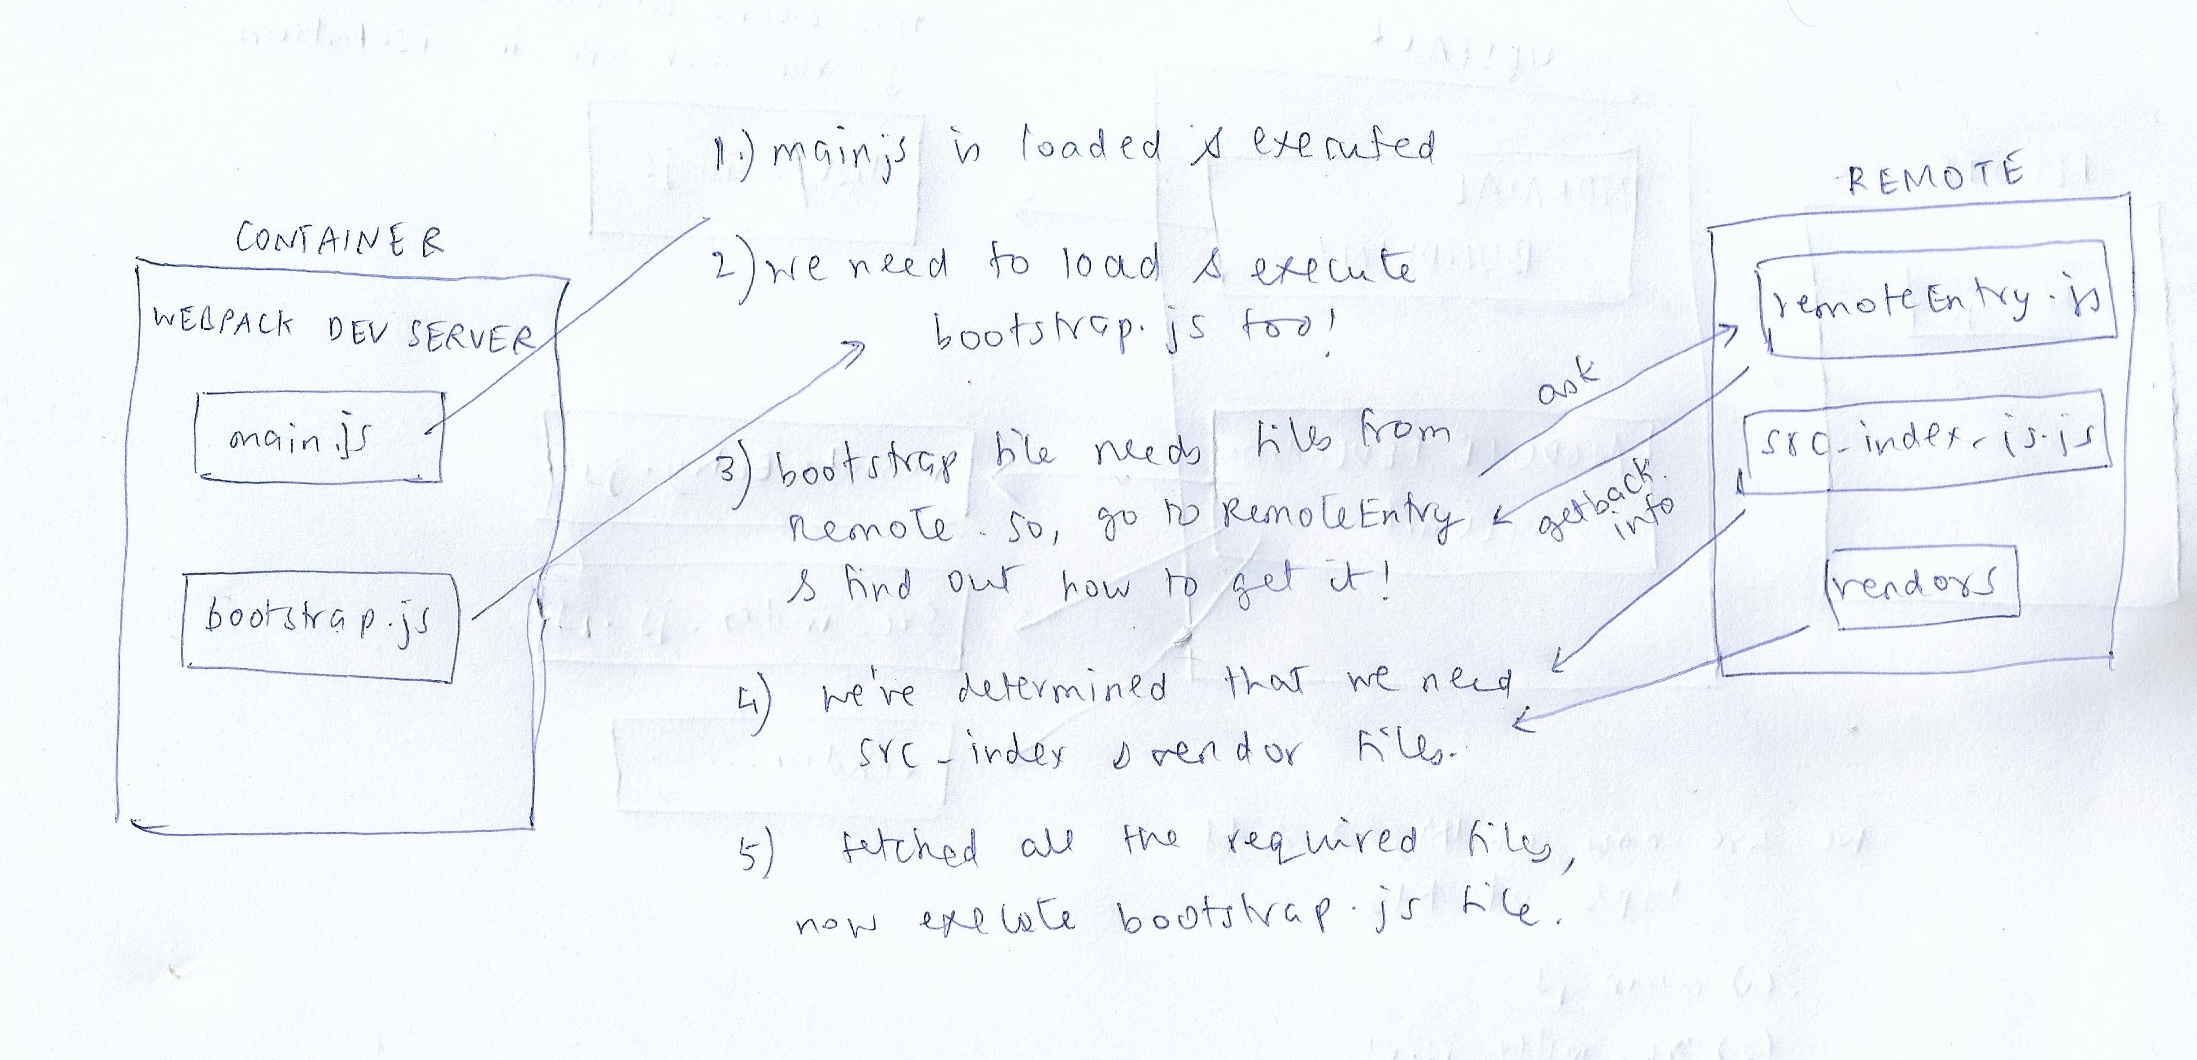 1.) main.js is loaded & executed
REMOTE
CONTAINER
2) we need to load & execute
bootstrap.js too!
WEBPACK DEV SERVER
remoteEntry.js
main.js
ask
3) bootstrap file needs files from
Remote. so, go to RemoteEntry
& find out how to get it!
getback
info
src_index_js.js
bootstrap.js
vendors
4) we've determined that we need
src_index & vendor files.
5) fetched all the required files,
now execute bootstrap.js file.